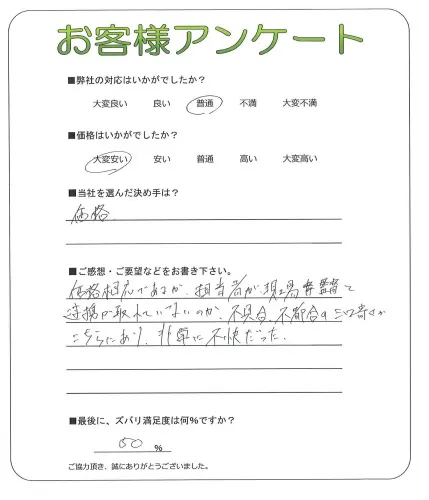 お客様アンケート
■弊社の対応はいかがでしたか？
大変良い 良い 普通 不満 大変不満
■価格はいかがでしたか？
大変安い 安い 普通 高い 大変高い
■当社を選んだ決め手は？
価格
■ご感想・ご要望などをお書き下さい。
価格相応であるが、担当者が現場監督と
連携が取れていないのか、不具合、不都合の
こちらにあり、非常に不快だった。
■最後に、ズバリ満足度は何％ですか？
50 ％
ご協力頂き、誠にありがとうございました。